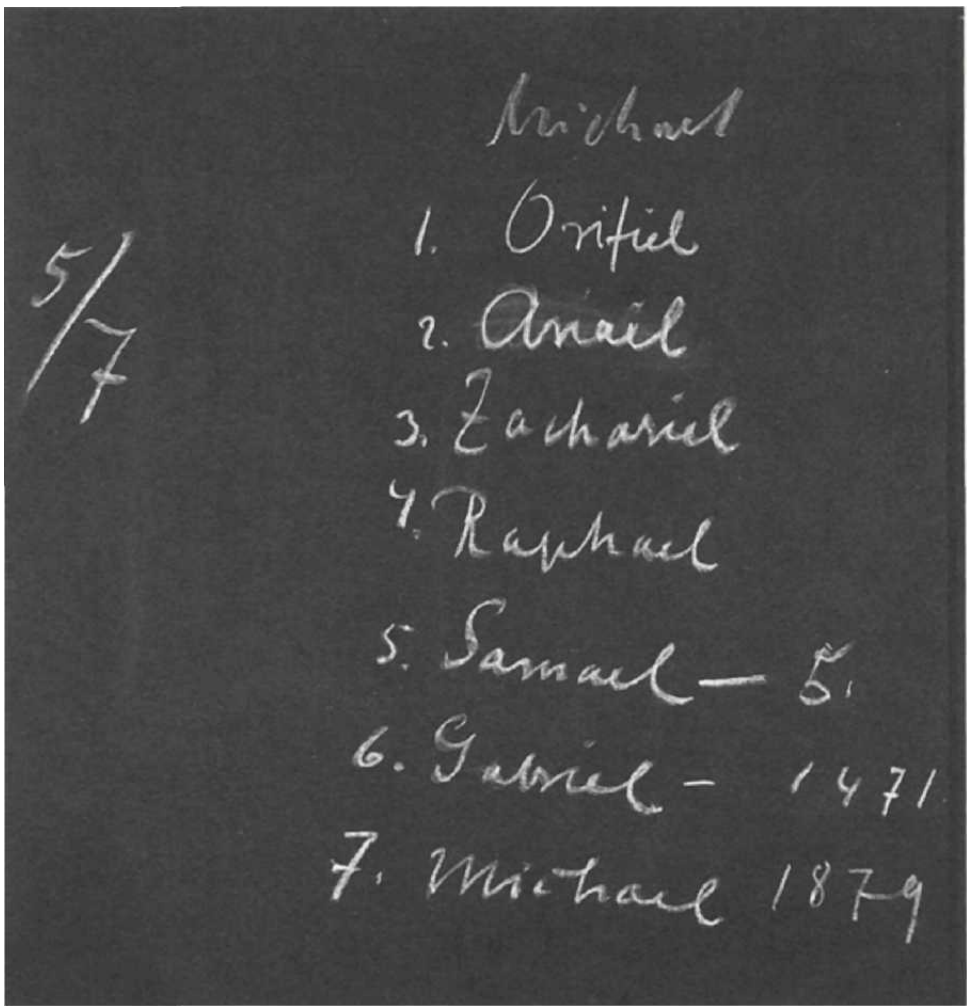 Michael
1. Orifiel
2. Anael
3. Zachariel
4. Raphael
5. Samael — 5.
6. Gabriel – 1471
7. Michael 1879
5/7